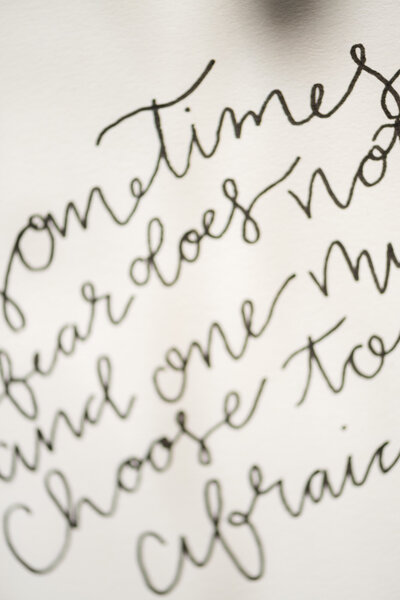 sometimes
fear does not
and one mu
choose to
afraid